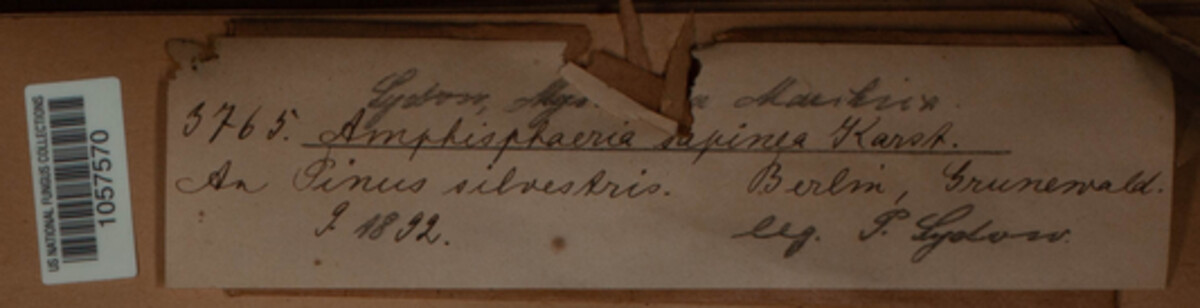 US NATIONAL FUNGUS COLLECTIONS
1057570
Sydow, Myc. Marchica.
3765. Amphisphaeria sapinea Karst.
An Pinus silvestris. Berlin, Grunewald.
9. 1892. leg. P. Sydow.